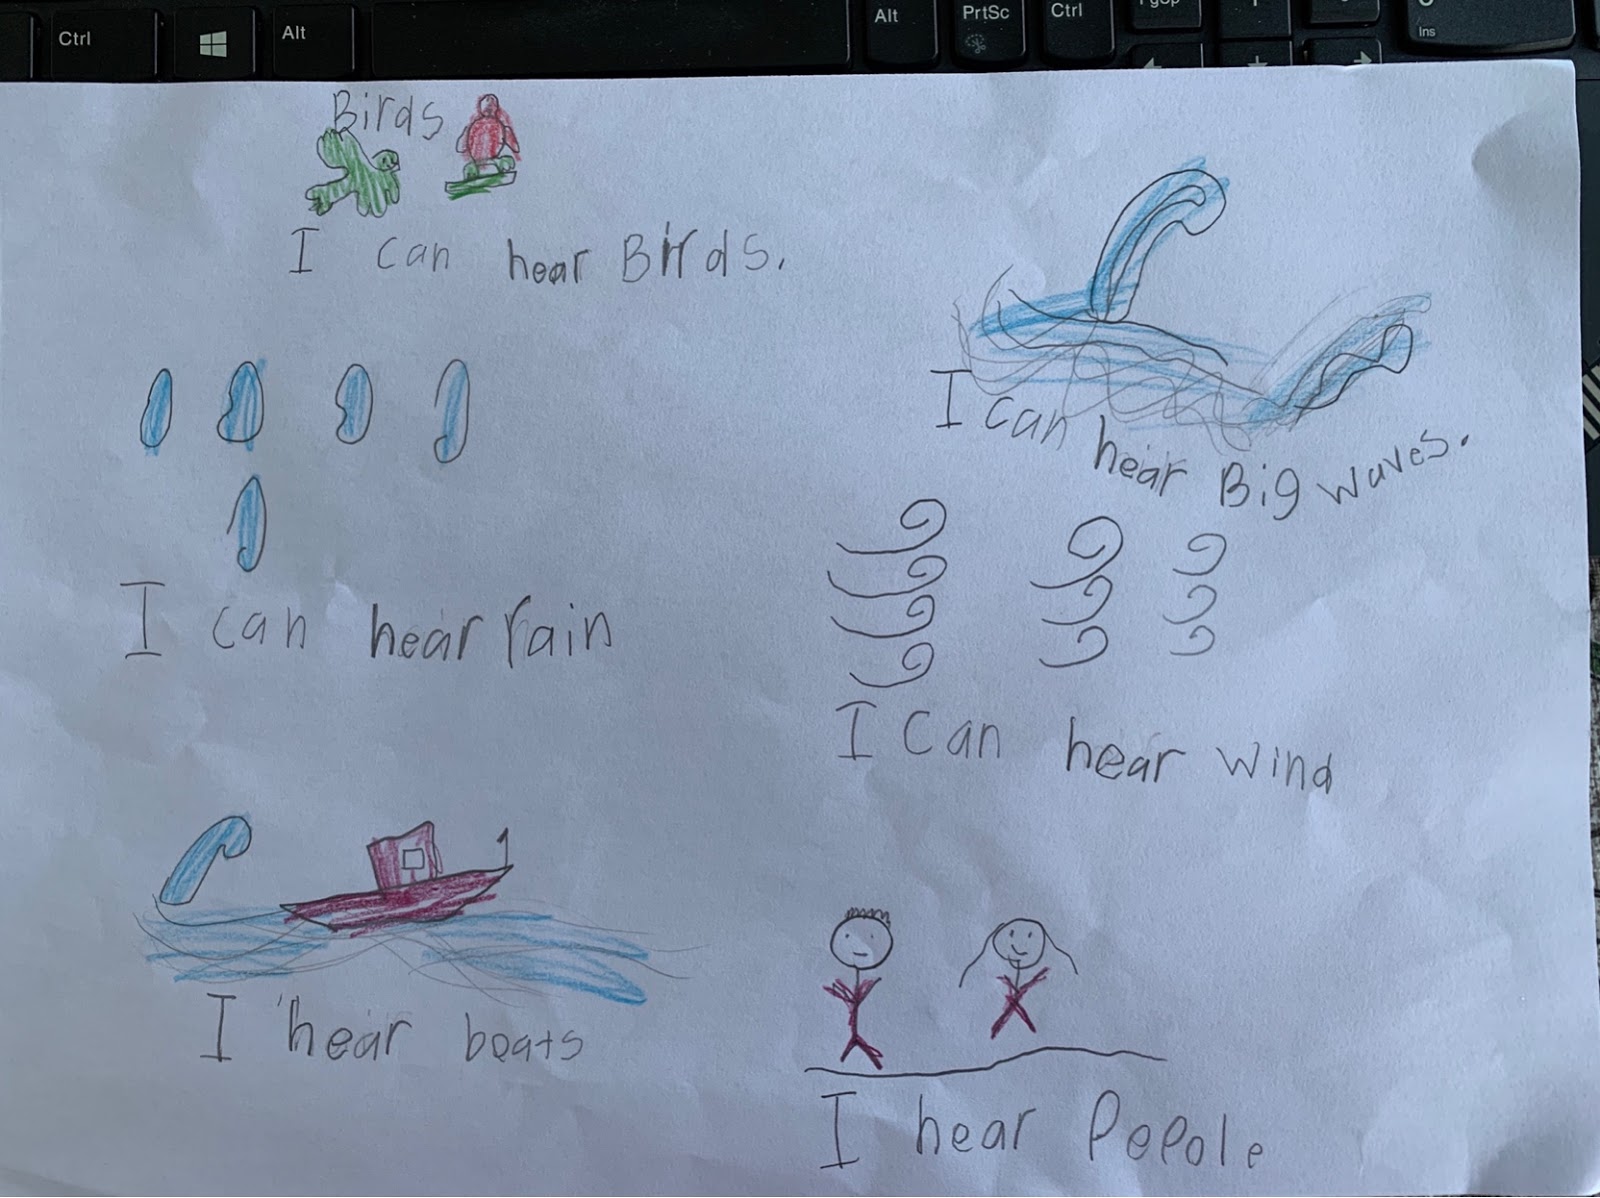 Ctrl
Alt
Alt
PrtSc
Ctrl
PgUp
Ins
Birds
I can hear Birds.
I can hear Big waves.
I can hear rain
I can hear wind
I hear boats
I hear Pepole